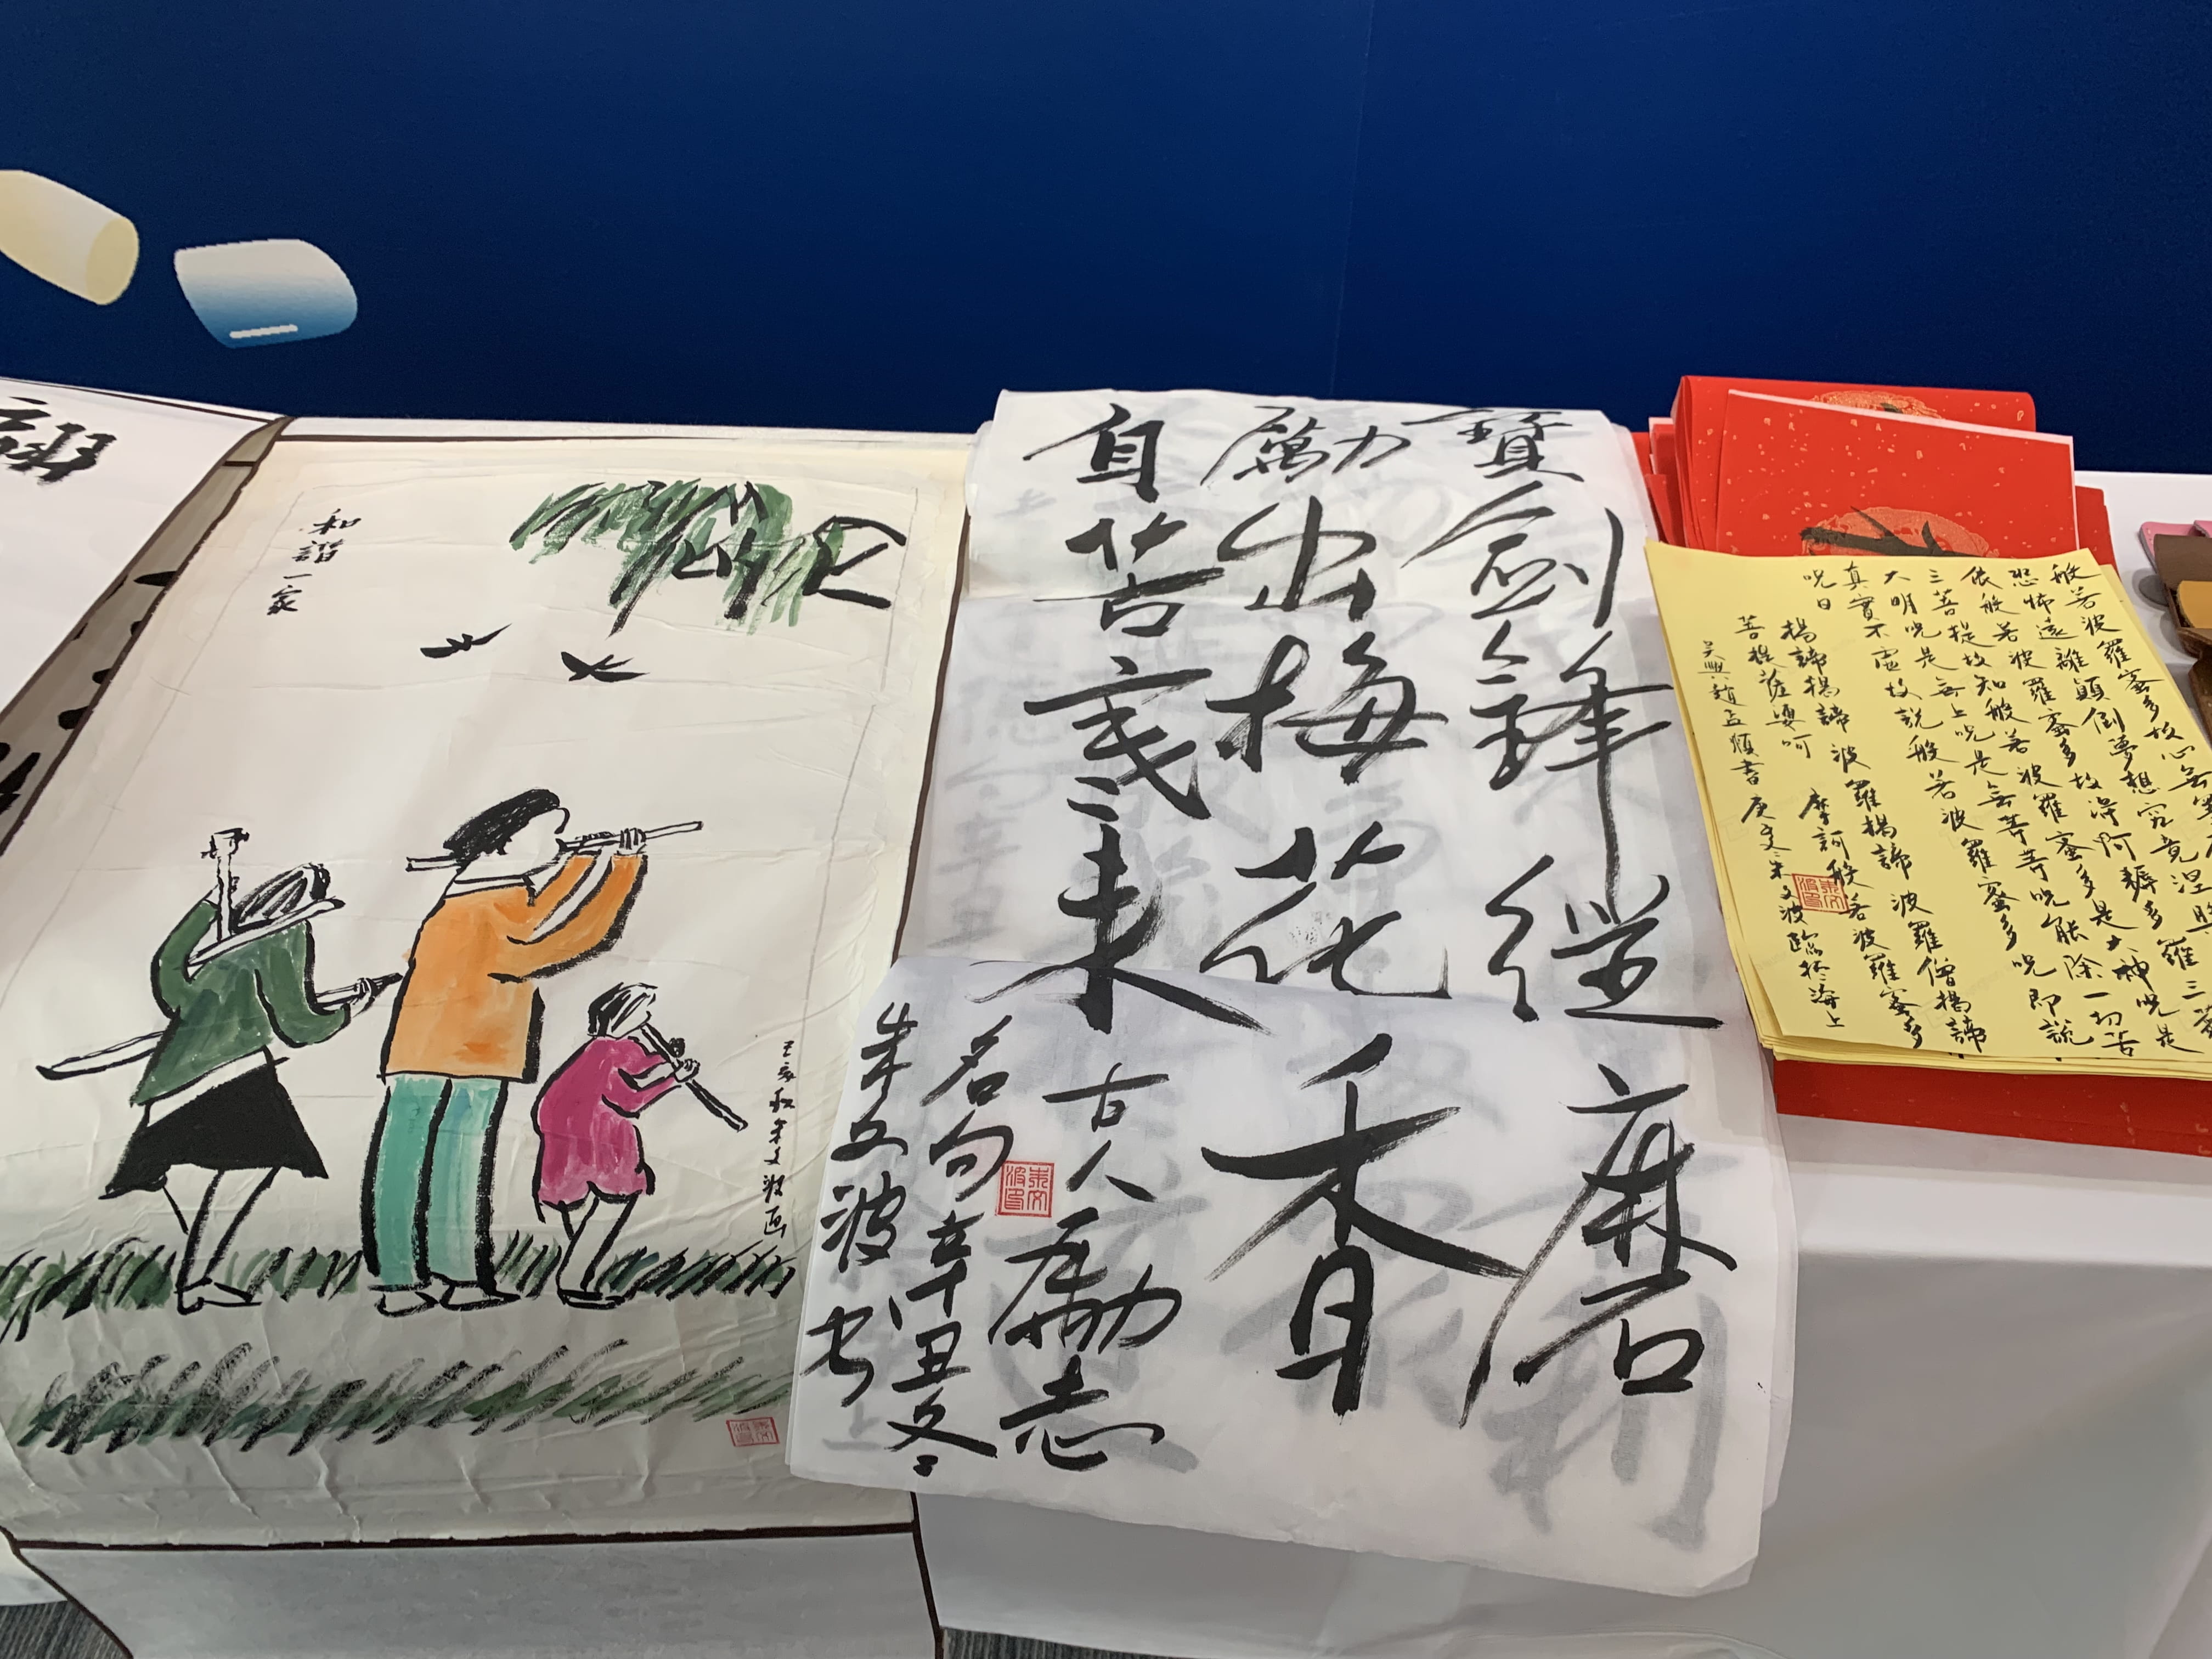 和諧一家
己亥秋朱文波画
寶劍鋒從磨
勵出梅花香
自苦寒来
古人励志
名句辛丑冬
朱文波书
般若波羅蜜多故心無罣
恐怖遠離顛倒夢想究竟涅槃三
依般若波羅蜜多故得阿耨多羅三藐
三菩提故知般若波羅蜜多是大神呪是
大明呪是無上呪是無等等呪能除一切苦
真實不虛故說般若波羅蜜多呪即說
呪曰
揭諦揭諦 波羅揭諦 波羅僧揭諦
菩提薩婆呵 摩訶般若波羅蜜多
吳興趙孟頫書 庚子朱文波臨於海上